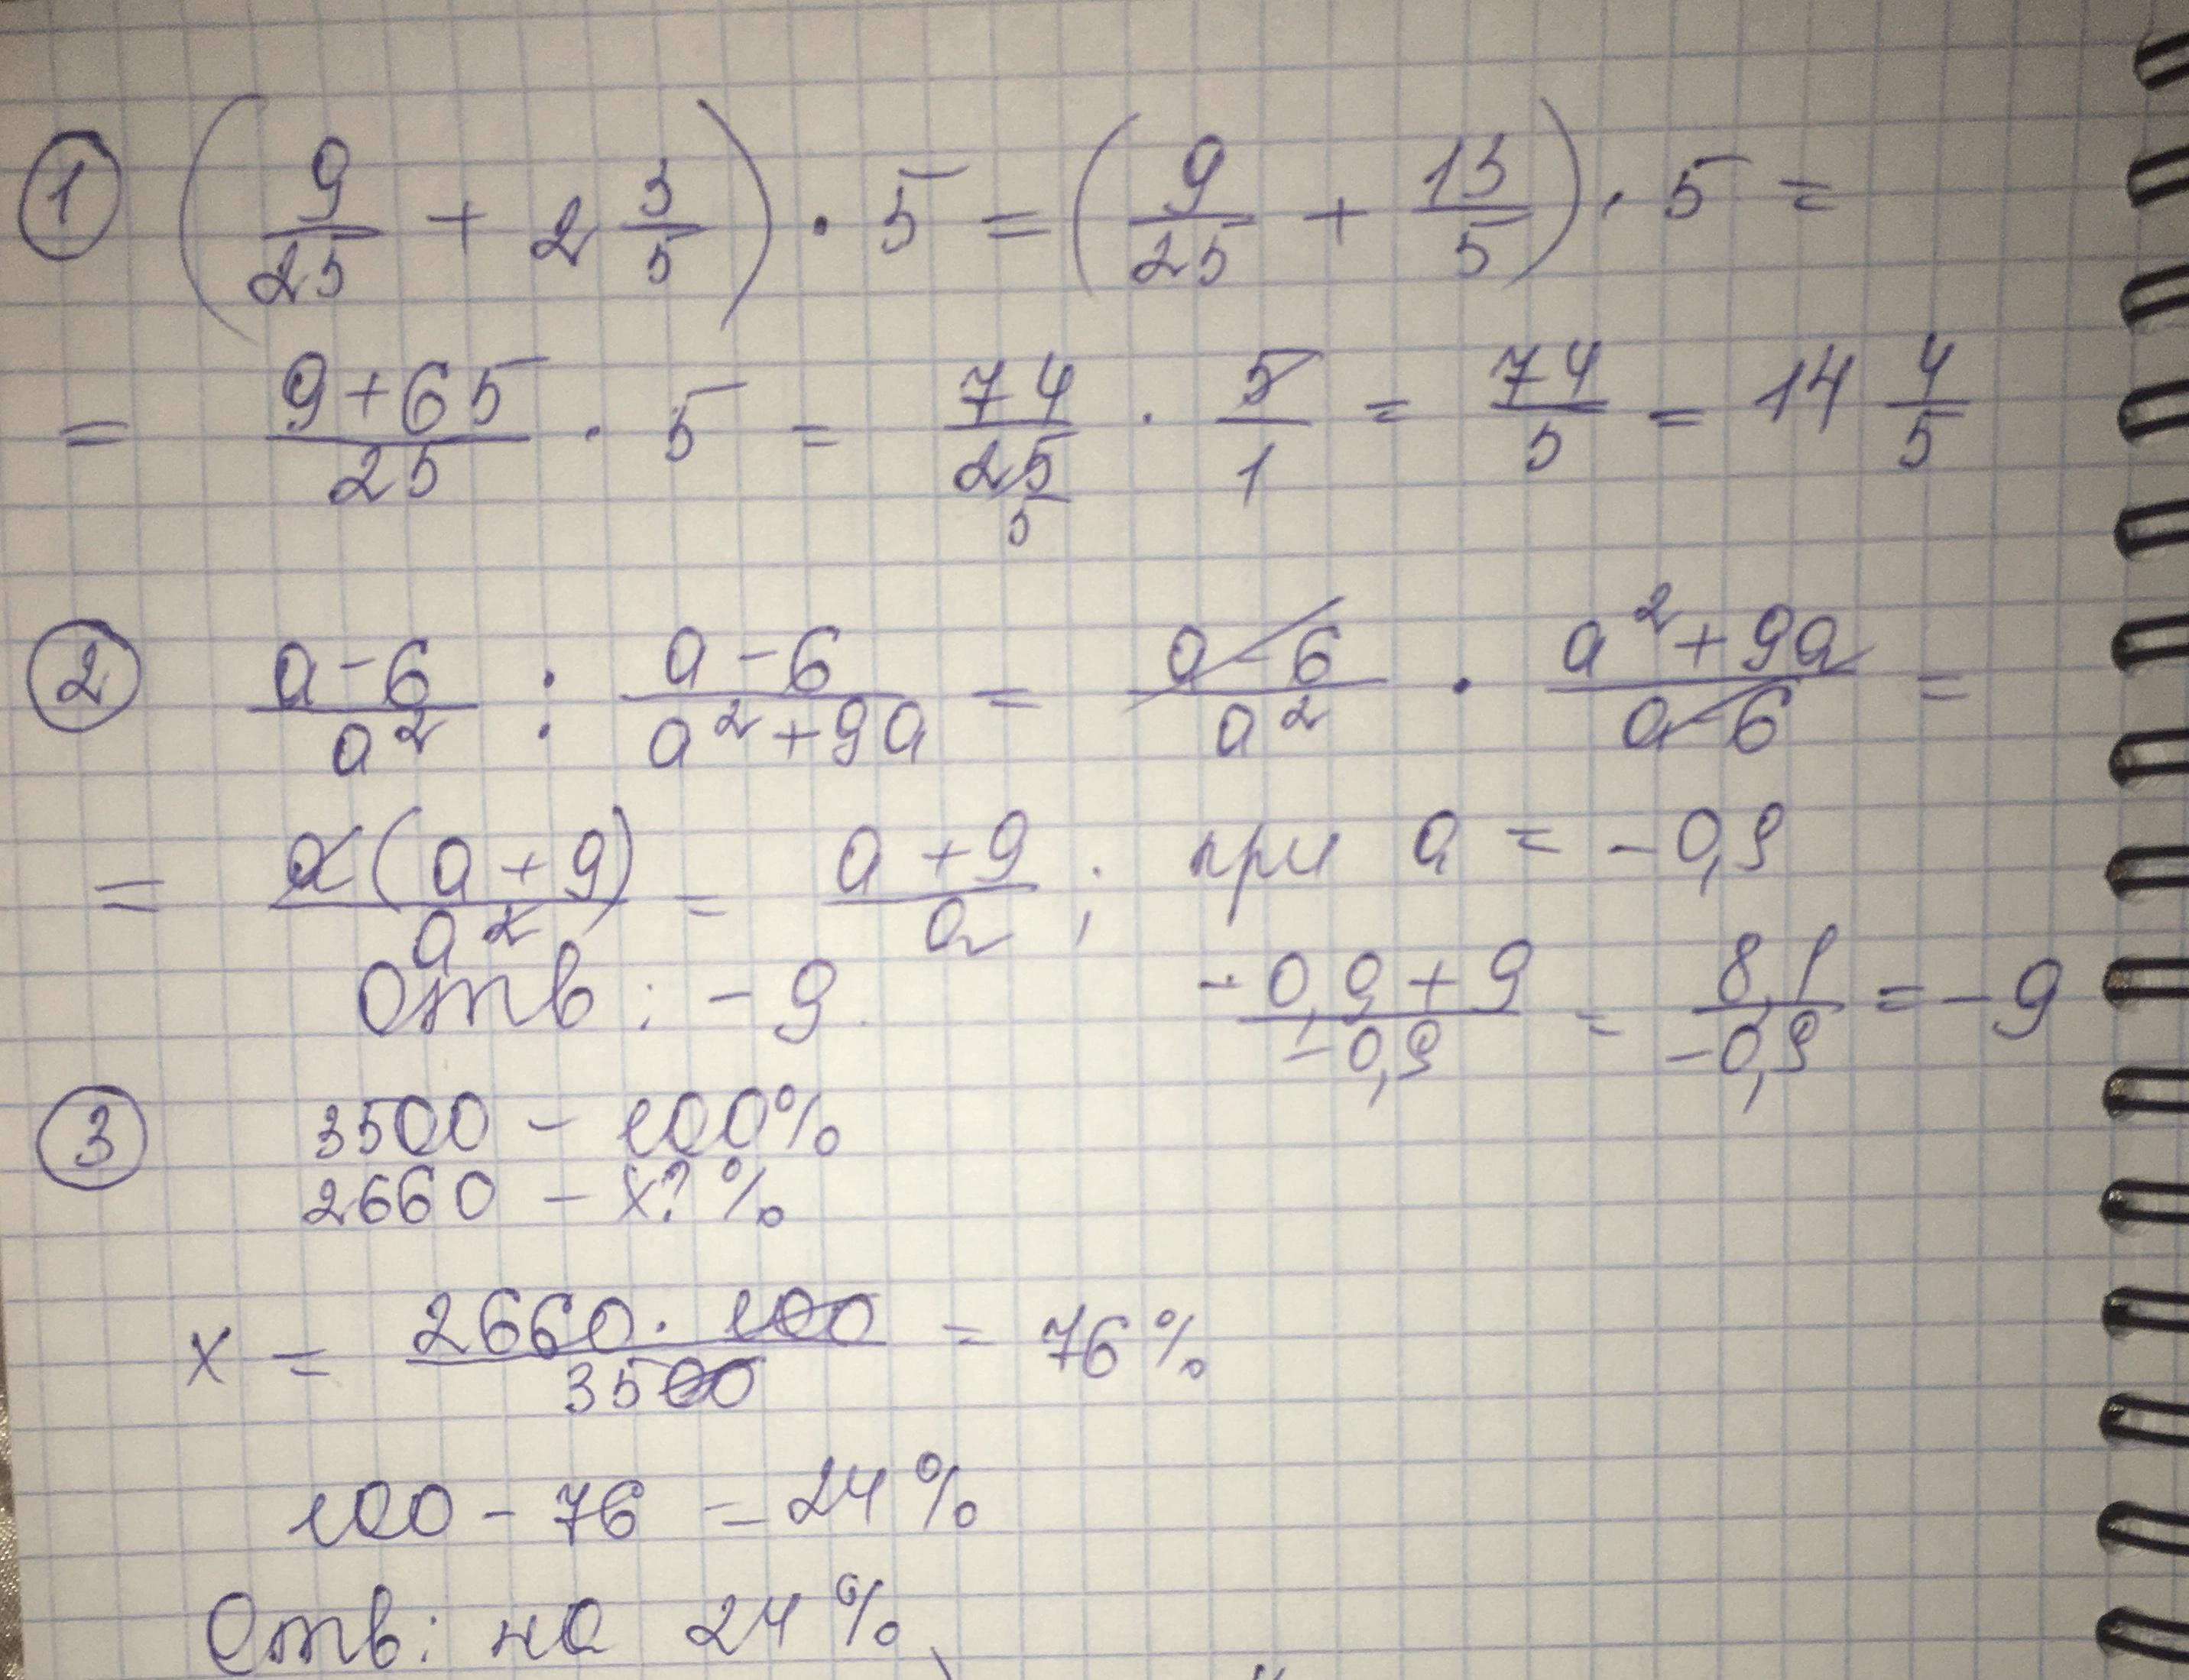 ① (9/25 + 2 3/5) · 5 = (9/25 + 13/5) · 5 =
= (9+65)/25 · 5 = 74/25 · 5/1 = 74/5 = 14 4/5
5
② (a-6)/a² : (a-6)/(a²+9a) = (a-6)/a² · (a²+9a)/(a-6) =
= a(a+9)/a² = (a+9)/a ; при a = -0,9
Отв: -9. (-0,9+9)/(-0,9) = 8,1/(-0,9) = -9
③ 3500 - 100%
2660 - x? %
x = (2660 · 100)/3500 = 76%
100 - 76 = 24%
Отв: на 24%